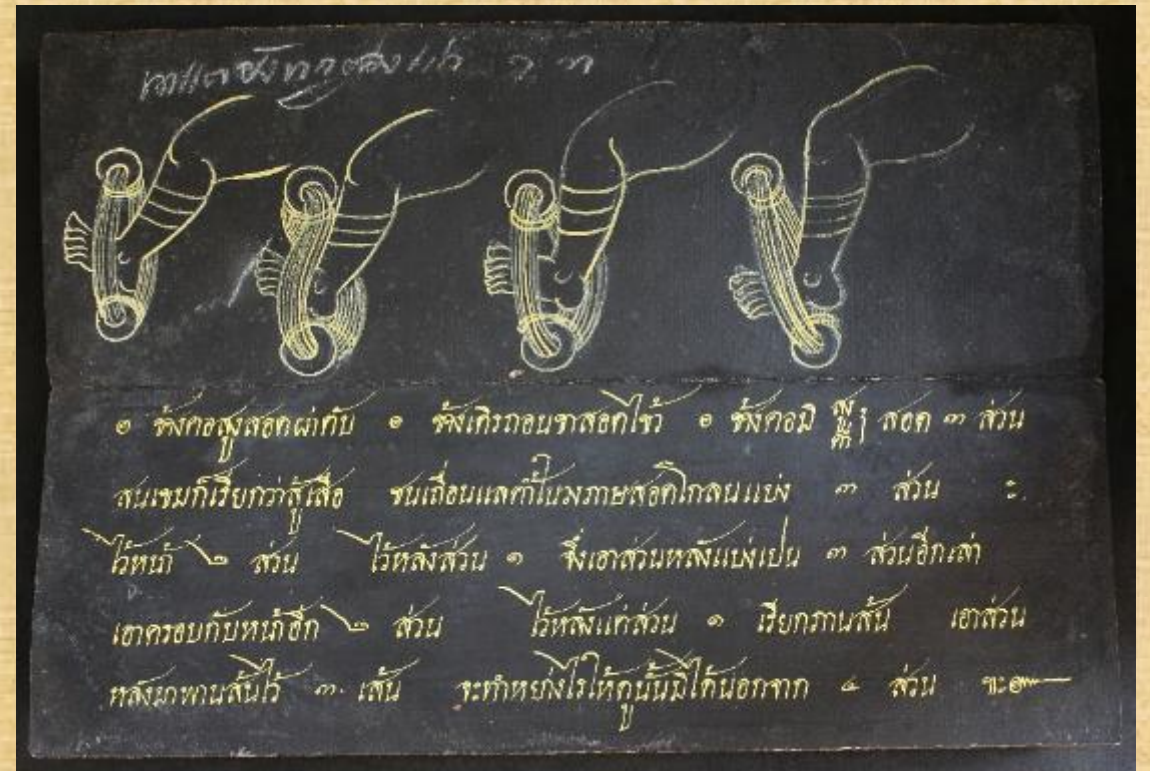 ๏ ช้างคอสูงสอดผ่าตับ ๏ ช้างเดิรถอนขาสอดไขว้ ๏ ช้างคอมิ สูง ต่ำ สอด ๓ ส่วน
สนเขมกํเรียกว่าสู้เสือ ชนเถื่อนแลดำใบมงภาษสอดไกลนแบ่ง ๓ ส่วน ะ
ไว้หน้า ๒ ส่วน ไว้หลังส่วน ๑ จึ่งเอาส่วนหลังแบ่งเปน ๓ ส่วนอีกเล่า
เอาครอบกับหน้าอีก ๒ ส่วน ไว้หลังแต่ส่วน ๑ เรียกพานส้น เอาส่วน
หลังมาพานส้นไว้ ๓ เส้น จะทำหย่างไรให้ดูนั้นมิได้นอกจาก ๔ ส่วน